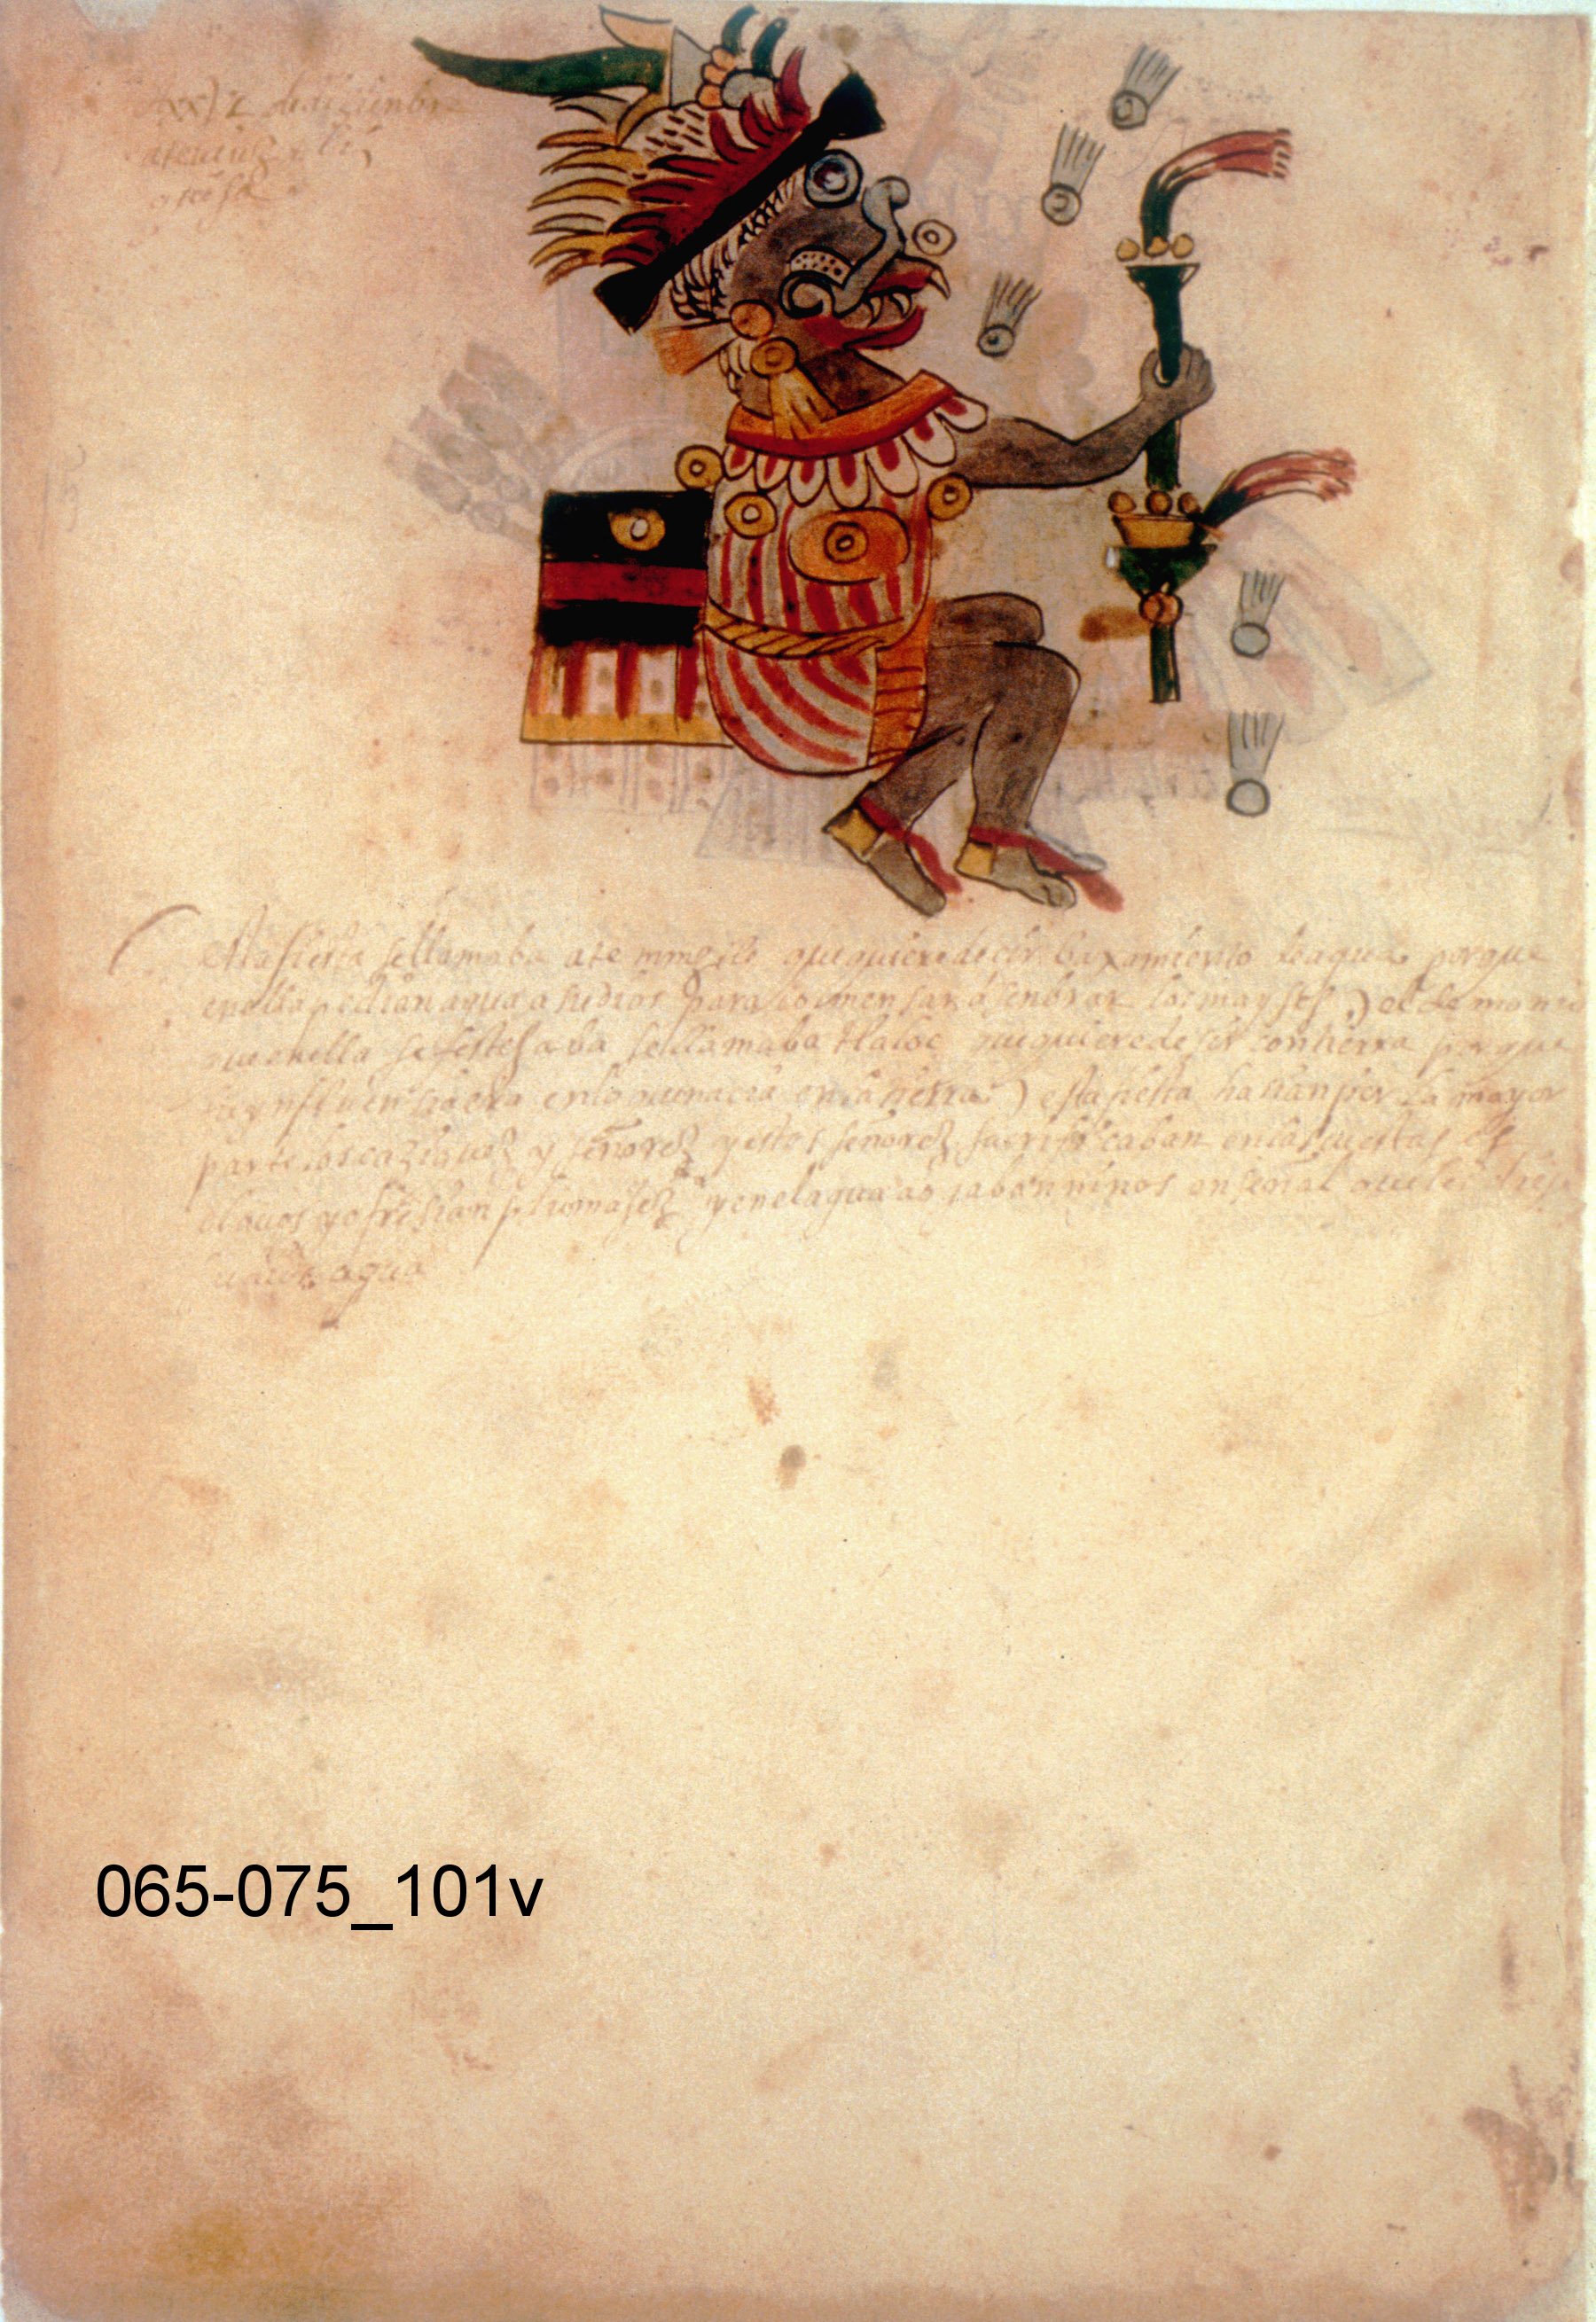 de dizienbre
esta fiesta se llamaba atemmoztli que quiere dezir baxamiento de agua porque
en ella pedian agua a su dios para comensar a senbrar los mayses y el demonio
que en ella se festejaba se llamaba tlaloc que quiere desir con tierra porque
su ynfluensia era en lo que nacia en la tierra esta fiesta hasian por la mayor
parte los caziques y señores y estos señores sacrificaban en las cuestas es
clavos y ofresian plumajes y en el agua niños en señal que les
agua
065-075_101v